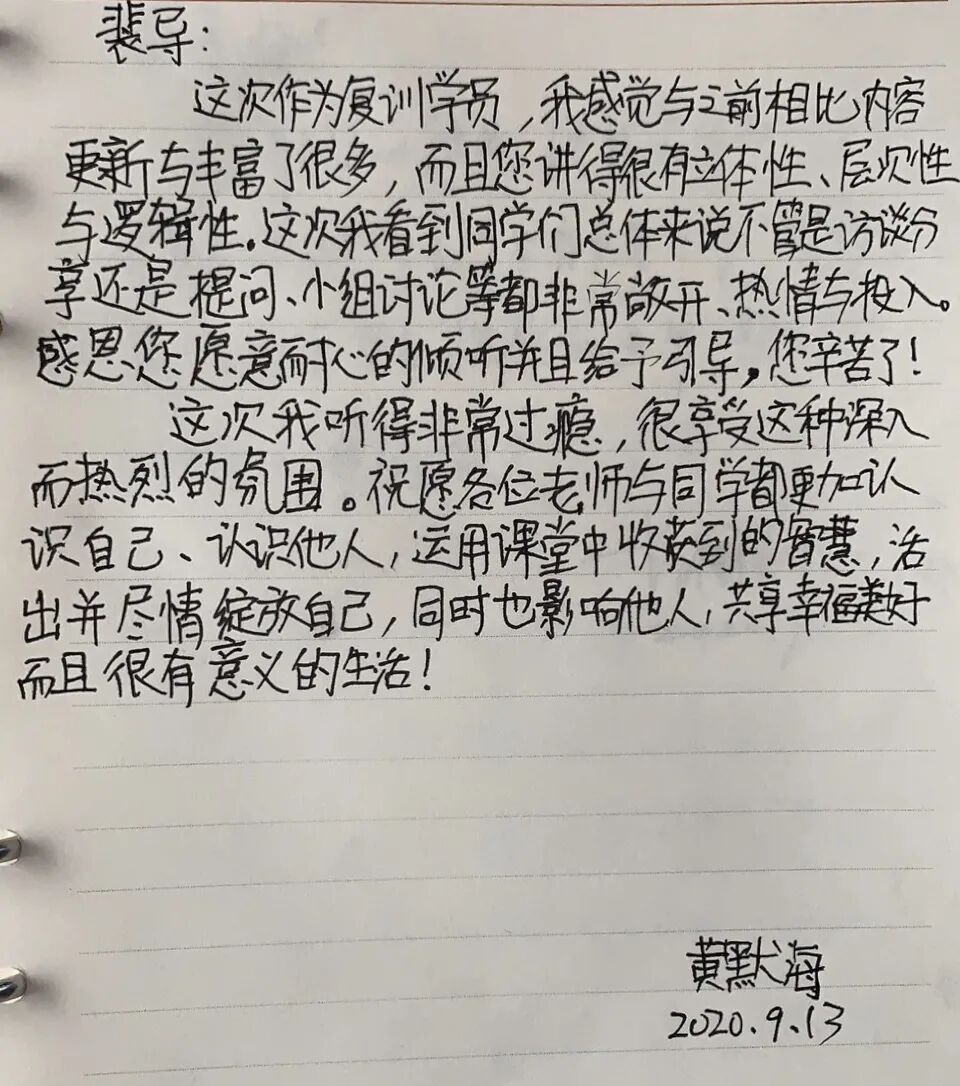 裴导：
这次作为复训学员，我感觉与之前相比内容
更新与丰富了很多，而且您讲得很有立体性、层次性
与逻辑性。这次我看到同学们总体来说不管是访谈分
享还是提问、小组讨论等都非常敞开、热情与投入。
感恩您愿意耐心的倾听并且给予引导，您辛苦了！
这次我听得非常过瘾，很享受这种深入
而热烈的氛围。祝愿各位老师与同学都更加认
识自己、认识他人，运用课堂中收获到的智慧，活
出并尽情绽放自己，同时也影响他人，共享幸福美好
而且很有意义的生活！
黄默海
2020.9.13